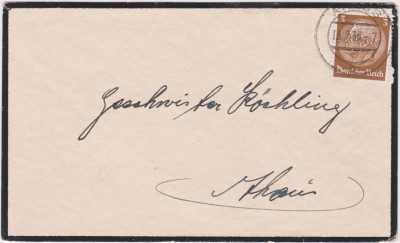 3 3
Deutsches Reich
Geschwister Köchling
Ahaus